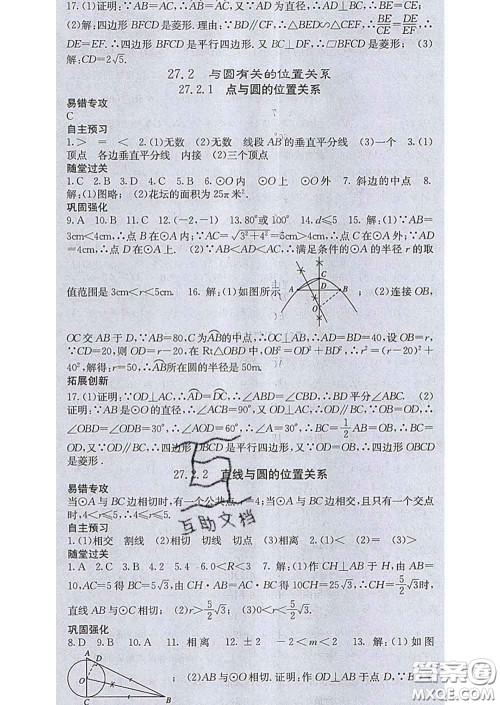 17.(1)证明:∵AB=AC,∴AB=AC,又∵AD为直径,∴BE=CE;
(2)解:四边形BFCD是菱形.理由:∵BD∥CF,∴△BED∽△CEF.∴BE/CE=DE/EF.∴
DE=EF.∴四边形BFCD是平行四边形.又BC⊥DF,∴▱BFCD是菱形; (3)
解:CD=2√5.
27.2 与圆有关的位置关系
27.2.1 点与圆的位置关系
易错专攻
C
自主预习
1.> = < 2.(1)无数 (2)无数 线段AB的垂直平分线 (3)一个 3.(1)
顶点 各边垂直平分线 内接 (2)三个顶点
随堂过关
1.C 2.B 3.D 4.C 5.B 6.⊙O内 ⊙O上 ⊙O外 7.斜边的中点 8.
解:(1)图略; (2)花坛的面积为25π米².
巩固强化
9.A 10.B 11.C 12.(-2,-1) 13.80°或100° 14.d≤5 15. 解:(1)∵AB=
3cm<4cm,∴点B在⊙A内;∵AC=√3²+4²=5cm>4cm,∴点C在⊙A外;∵AD
=4cm,∴点D在⊙A上. (2)∵AB<AD<AC,∴满足条件的⊙A的半径r的取
值范围是3cm<r<5cm. 16. 解:(1)如图所示 ; (2)连接OB,
C
A
D
B
O
OC交AB于D,∵AB=80,C为AB的中点,∴OC⊥AB,∴AD=BD=40,设OB=r,
∵CD=20,则OD=r-20,在Rt△OBD中,OB²=OD²+BD²,∴r²=(r-20)²+
40²,解得:r=50,∴AB所在圆的半径是50m.
拓展创新
17.(1)证明:∵OD⊥AC,∴AD=DC,∴∠ABD=∠CBD,∴BD平分∠ABC. (2)
证明:∵AB是⊙O的直径,∴∠ACB=90°,又∵OD⊥AC,∴OD∥BC,∵OB=OD,
∴∠OBD=∠ODB=30°,∴∠AOD=∠ABC=60°,∴∠A=30°,∴BC=1/2AB=OB=
OD,又∵OD∥BC,∴四边形OBCD是平行四边形,又∵OB=OD,∴四边形OBCD
是菱形.
27.2.2 直线与圆的位置关系
易错专攻
当⊙A与BC边相切时,有一个公共点,r=4;当⊙A与BC边相交,且只有一个交点
时,4<r≤5,∴4≤r≤5.
自主预习
1.(1)相交 割线 (2)相切 切线 切点 (3)相离 2.(1)< (2)= (3)>
随堂过关
1.A 2.C 3.B 4.2 5.4 6.0<R<3 7.解:(1)作CH⊥AB于H,由AB=
10,AC=5得BC=5√3,由CH·AB=AC·BC得10CH=25√3,∴CH=5/2√3时,
直线AB与⊙C相切; (2)r>5/2√3; (3)0<r<5/2√3.
巩固强化
8.D 9.B 10.A 11. 相离 12. ±2 -2<m<2 13. 解:(1)如图
; (2)AB与⊙O相切.证明:作OD⊥AB于点D.
A
D
O
C
B
互助文档
答案圈
MXQE.COM